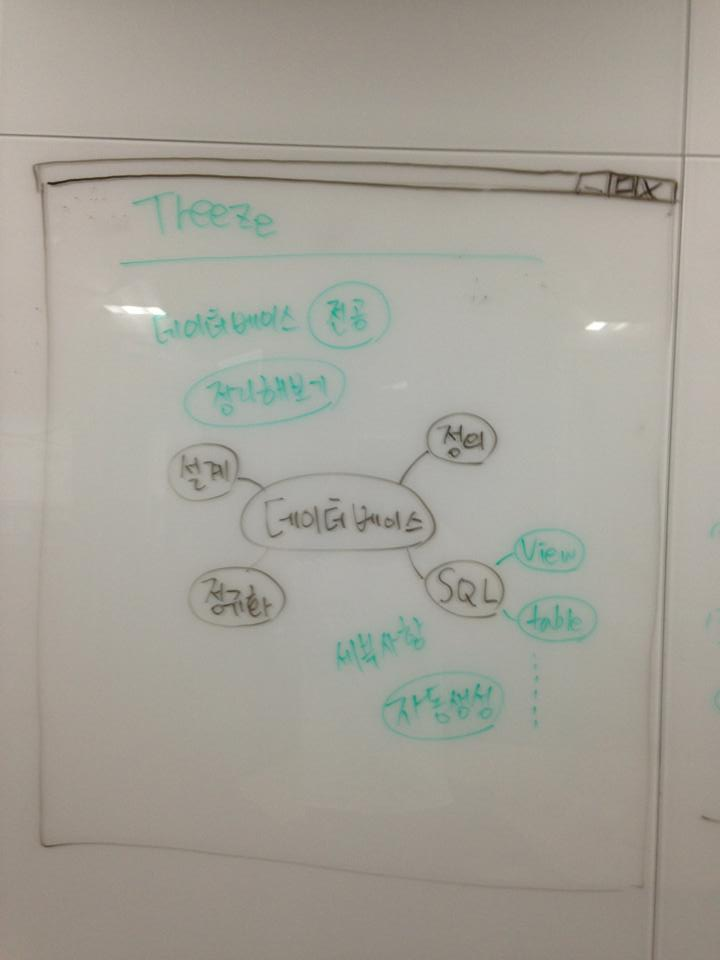 Treeze
데이터베이스 전공
정리해보기
설계
정의
데이터베이스
View
정규화
SQL
table
세부사항
자동생성